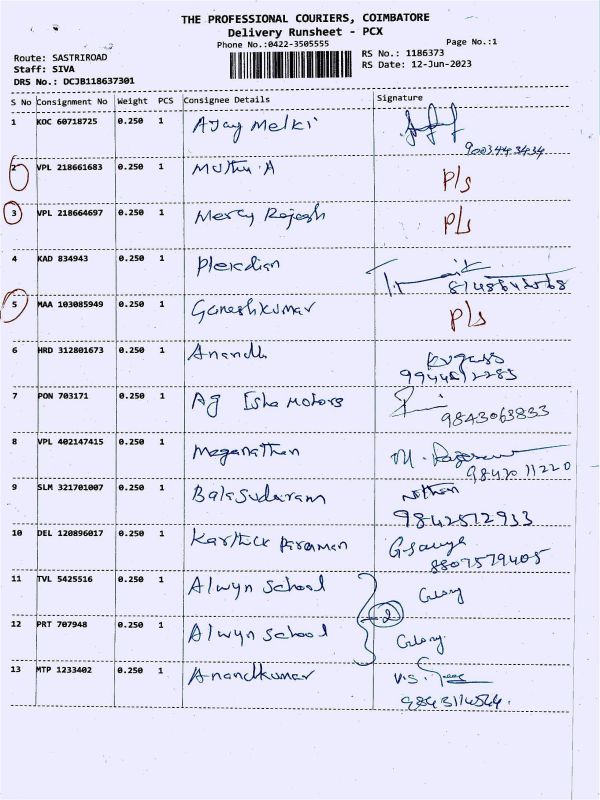 THE PROFESSIONAL COURIERS, COIMBATORE
Delivery Runsheet - PCX
Phone No.:0422-3505555
Page No.:1
Route: SASTRIROAD
RS No.: 1186373
Staff: SIVA
RS Date: 12-Jun-2023
DRS No.: DCJB118637301
S No Consignment No Weight PCS Consignee Details Signature
1 KOC 60718725 0.250 1 Ajay Melki
9003443434
2 VPL 218661683 0.250 1 Muthu.A P/s
3 VPL 218664697 0.250 1 Mercy Rajesh P/s
4 KAD 834943 0.250 1
5 MAA 103085949 0.250 1 Ganeshkumar P/s
6 HRD 312801673 0.250 1 Anandh
7 PON 703171 0.250 1 Ag Isha Motors
9843063833
8 VPL 402147415 0.250 1 Meganathan
9843011220
9 SLM 321701007 0.250 1 BalaSudaram Nathan
9842512933
10 DEL 120896017 0.250 1 Karthick
8807579405
11 TVL 5425516 0.250 1 Alwyn School
2
12 PRT 707948 0.250 1 Alwyn School
13 MTP 1233402 0.250 1 Anandkumar V.S.
9843114544.